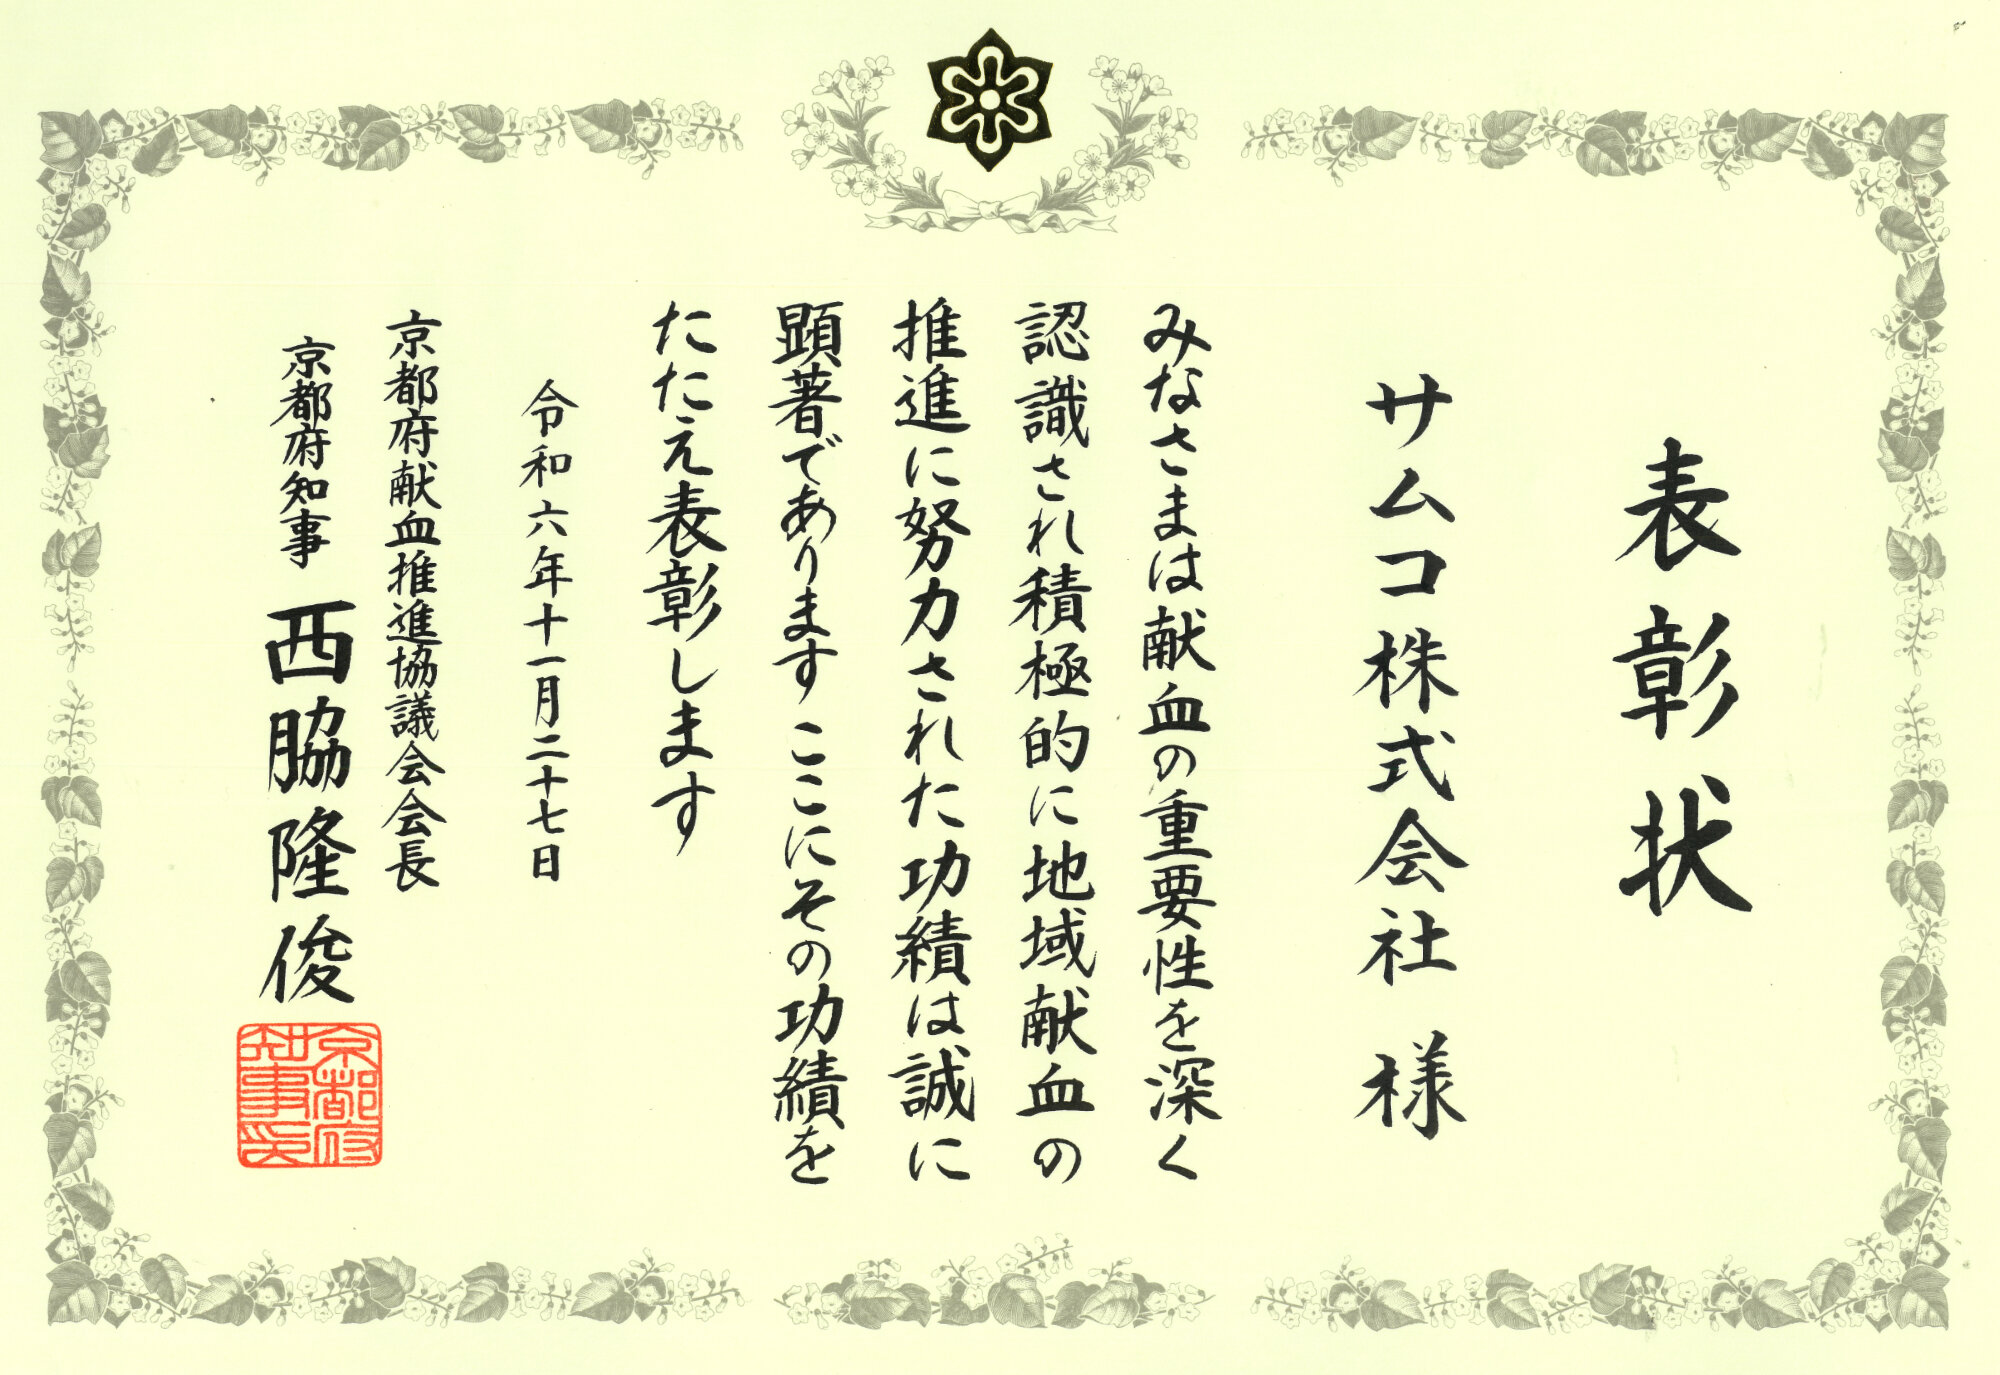 表彰状
サムコ株式会社 様
みなさまは献血の重要性を深く
認識され積極的に地域献血の
推進に努力された功績は誠に
顕著であります ここにその功績を
たたえ表彰します
令和六年十一月二十七日
京都府献血推進協議会会長
京都府知事 西脇隆俊
京都府
知事印